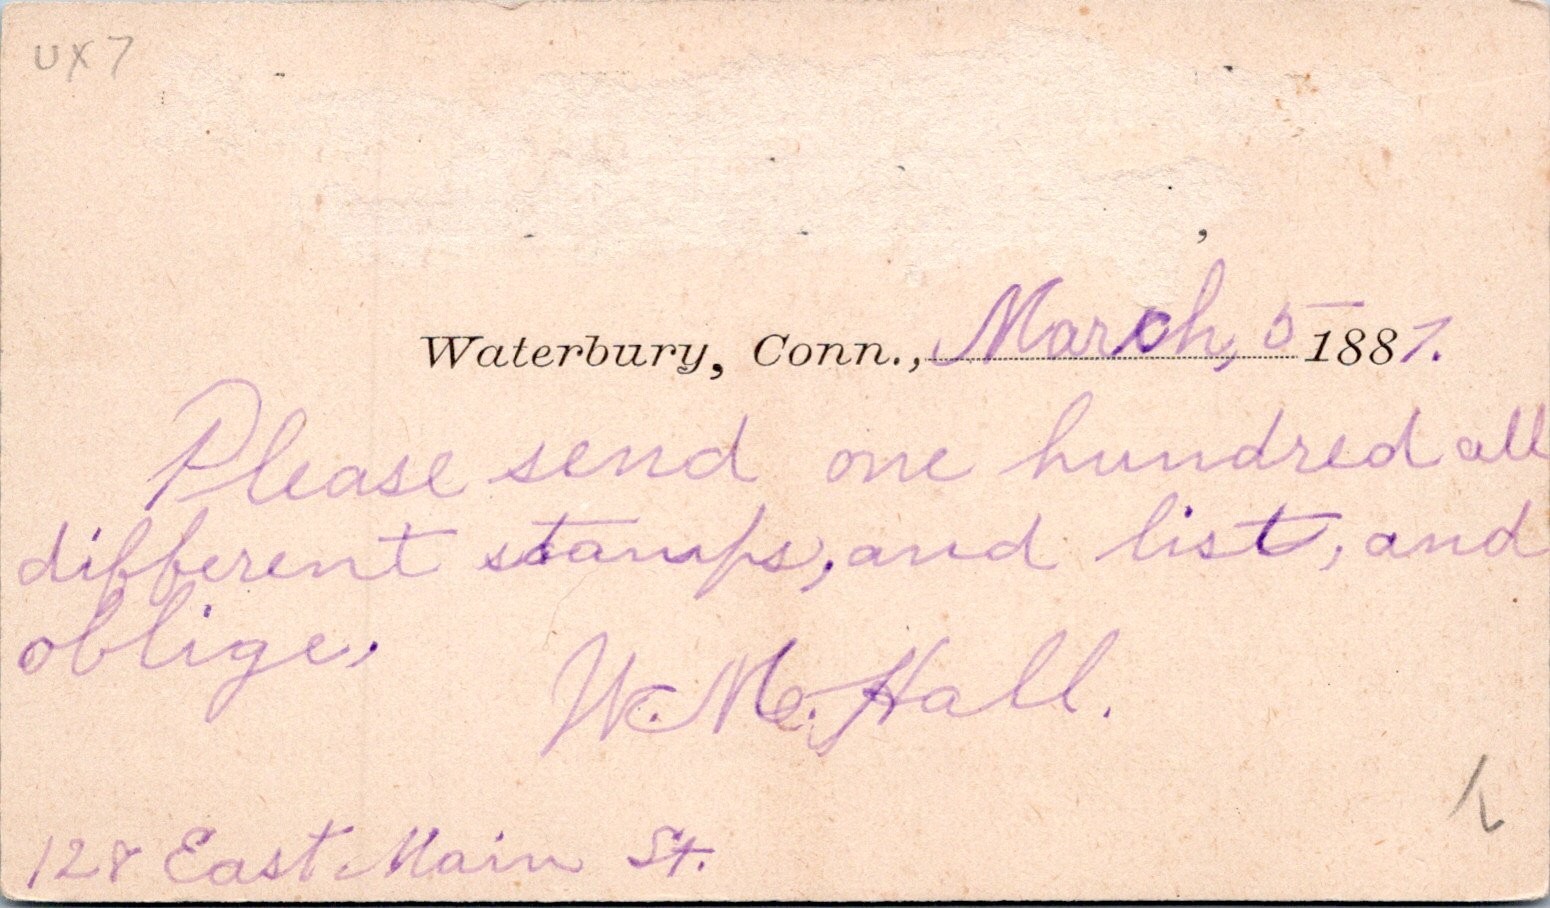 UX7
,
Waterbury, Conn., March, 5 1887.
Please send one hundred all
different stamps, and list, and
oblige.
W. M. Hall.
128 East Main St.